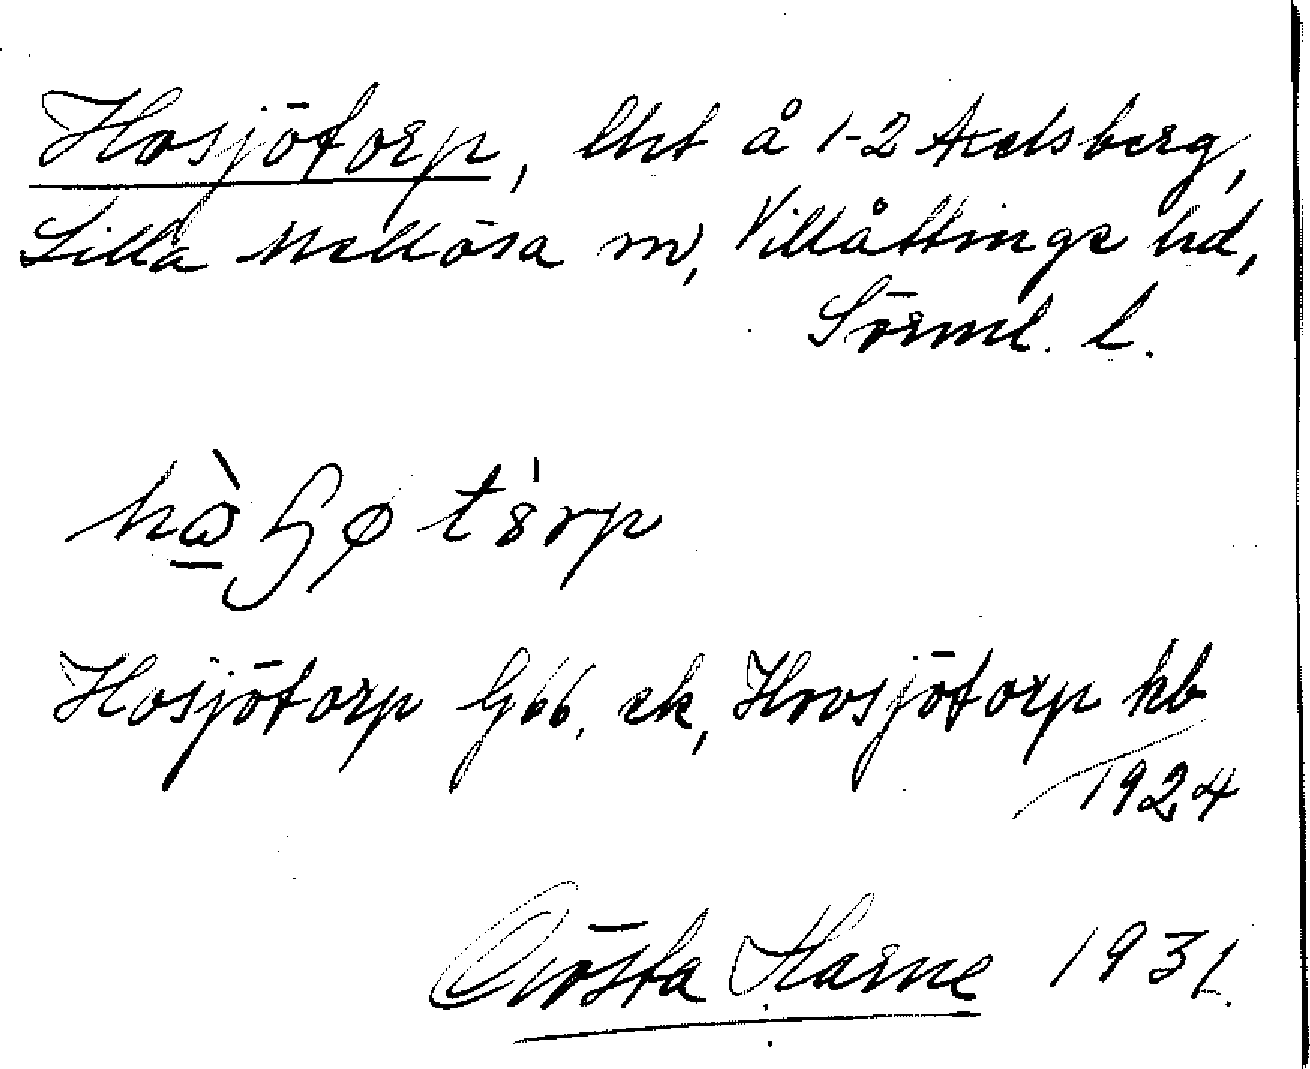 Hosjötorp, lht å 1-2 Axelsberg,
Lilla Mellösa sn, Villåttinge hd,
Sörml. l.
Hosjötorp Gbb. ek, Hovsjötorp kb
1924
Gösta Harne 1931.